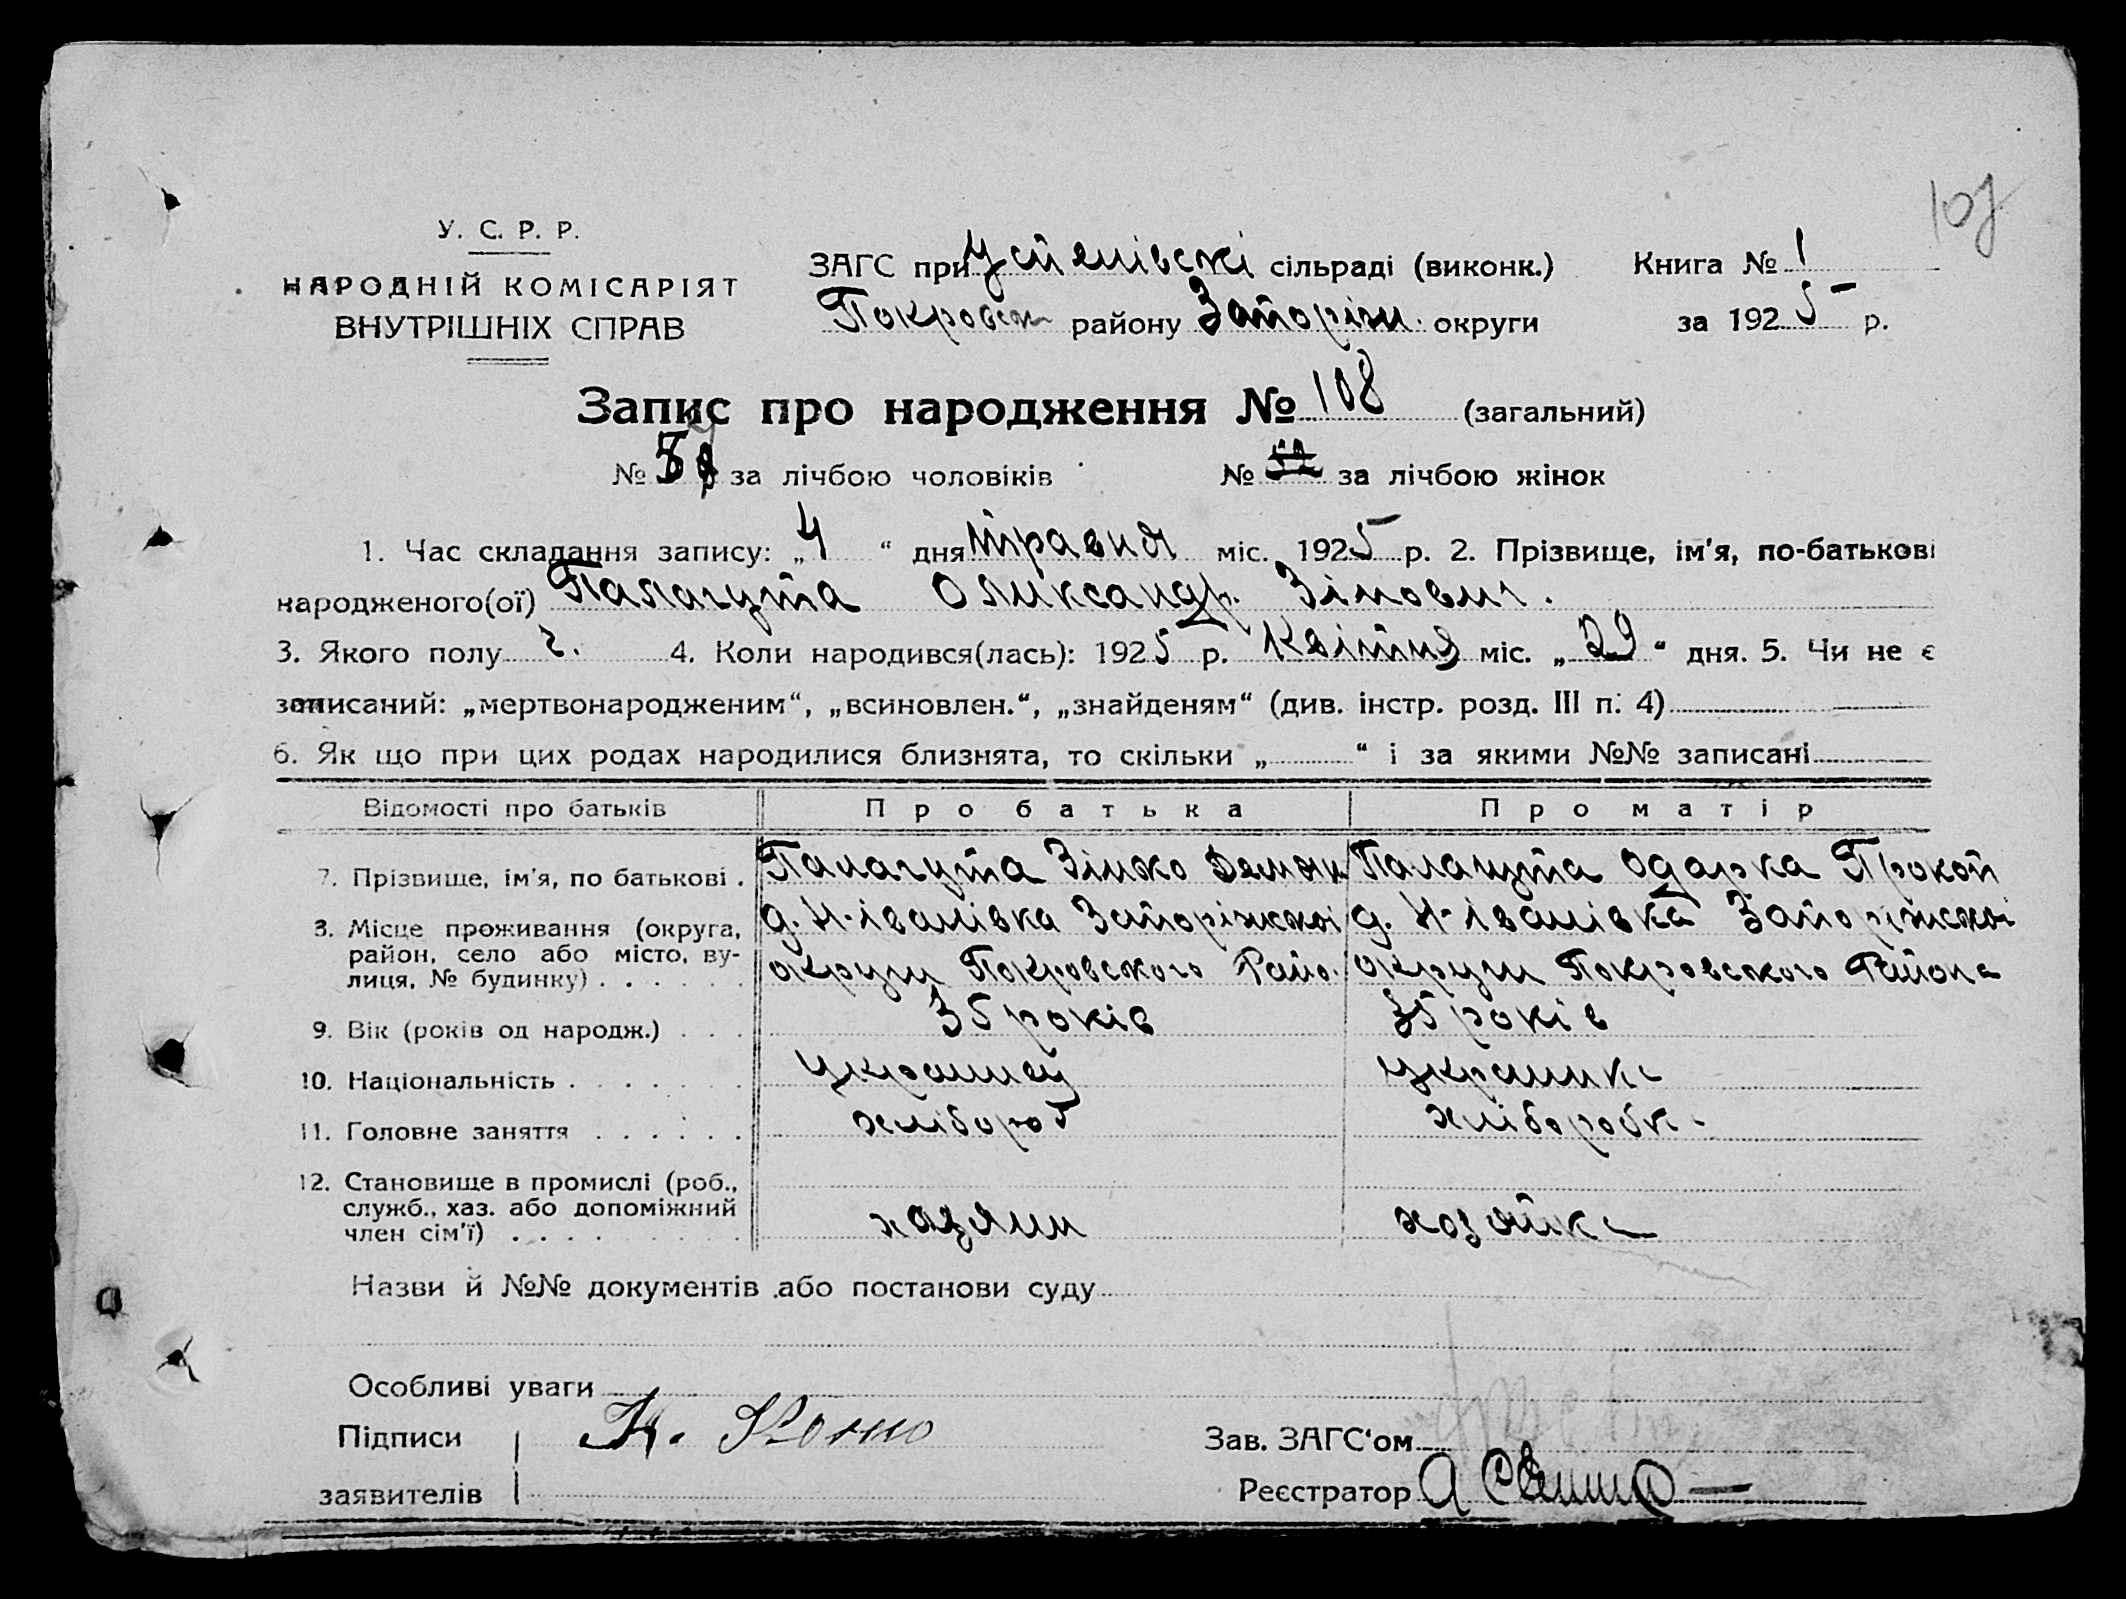 107
У. С. Р. Р.
НАРОДНІЙ КОМІСАРІЯТ
ВНУТРІШНІХ СПРАВ
ЗАГС при Устенівскі сільраді (виконк.) Книга № 1
Покровск району Запоріж. округи за 1925 р.
Запис про народження № 108 (загальний)
№ 57 за лічбою чоловіків № 52 за лічбою жінок
1. Час складання запису: „4“ дня травня міс. 1925 р. 2. Прізвище, ім'я, по-батькові
народженого(ої) Палагута Олександр. Зінович.
3. Якого полу ч. 4. Коли народився(лась): 1925 р. Квітня міс. „29“ дня. 5. Чи не є
записаний: „мертвонародженим“, „всиновлен.“, „знайденям“ (див. інстр. розд. III п. 4)
6. Як що при цих родах народилися близнята, то скільки „ “ і за якими №№ записані
Відомості про батьків Про батька Про матір
7. Прізвище, ім'я, по батькові . Палагута Зінко Демян Палагута Одарка Прокоп
8. Місце проживання (округа, район, село або місто, ву-
лиця, № будинку) . . . . . .
д. Н-Іванівка Запоріжської
округи Покровського Райо.
д. Н-Іванівка Запоріжської
округи Покровського Района
9. Вік (років од народж.) . . . 35 років 35 років
10. Національність . . . . . . . українец українка
11. Головне заняття . . . . . . хлібороб хліборобка
12. Становище в промислі (роб.,
служб., хаз. або допоміжний
член сім'ї) . . . . . . . . . хазяин хозяйка
Назви й №№ документів або постанови суду
Особливі уваги
Підписи
заявителів
Зав. ЗАГС'ом
Реєстратор